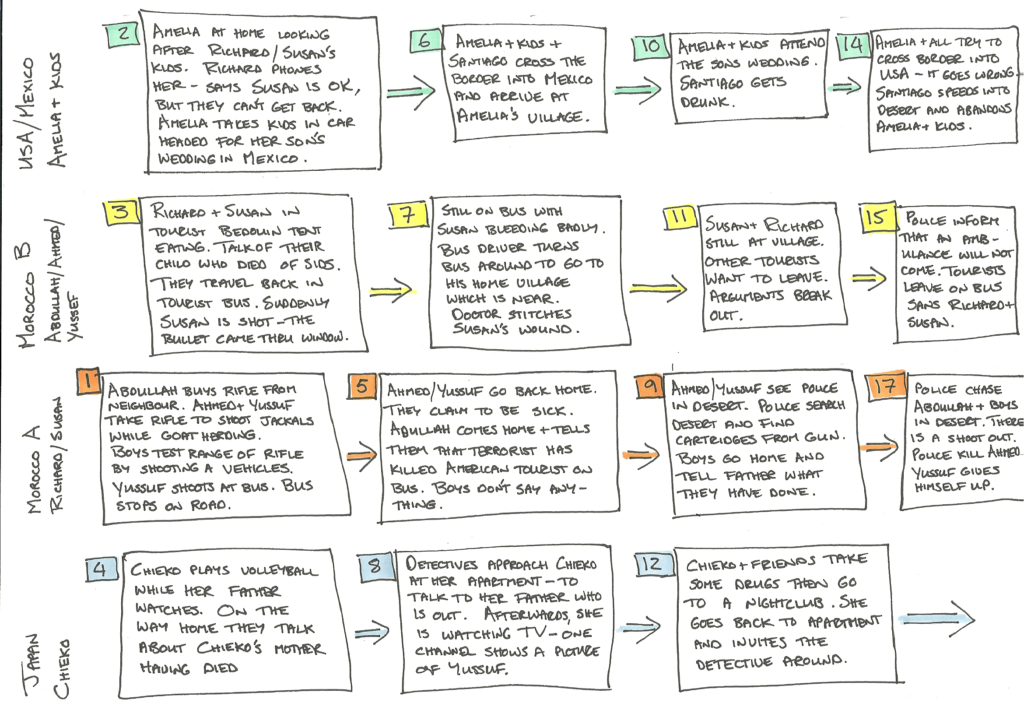 USA/MEXICO
AMELIA + KIDS
2
AMELIA AT HOME LOOKING
AFTER RICHARD/SUSAN'S
KIDS. RICHARD PHONES
HER - SAYS SUSAN IS OK,
BUT THEY CAN'T GET BACK.
AMELIA TAKES KIDS IN CAR
HEADED FOR HER SON'S
WEDDING IN MEXICO.
6
AMELIA + KIDS +
SANTIAGO CROSS THE
BORDER INTO MEXICO
AND ARRIVE AT
AMELIA'S VILLAGE.
10
AMELIA + KIDS ATTEND
THE SONS WEDDING.
SANTIAGO GETS
DRUNK.
14
AMELIA + ALL TRY TO
CROSS BORDER INTO
USA - IT GOES WRONG -
SANTIAGO SPEEDS INTO
DESERT AND ABANDONS
AMELIA + KIDS.
MOROCCO B
ABDULLAH/AHMED/
YUSSEF
3
RICHARD + SUSAN IN
TOURIST BEDOUIN TENT
EATING. TALK OF THEIR
CHILD WHO DIED OF SIDS.
THEY TRAVEL BACK IN
TOURIST BUS. SUDDENLY
SUSAN IS SHOT - THE
BULLET CAME THRU WINDOW.
7
STILL ON BUS WITH
SUSAN BLEEDING BADLY.
BUS DRIVER TURNS
BUS AROUND TO GO TO
HIS HOME VILLAGE
WHICH IS NEAR.
DOCTOR STITCHES
SUSAN'S WOUND.
11
SUSAN + RICHARD
STILL AT VILLAGE.
OTHER TOURISTS
WANT TO LEAVE.
ARGUMENTS BREAK
OUT.
15
POLICE INFORM
THAT AN AMB-
ULANCE WILL NOT
COME. TOURISTS
LEAVE ON BUS
SANS RICHARD +
SUSAN.
MOROCCO A
RICHARD/SUSAN
1
ABDULLAH BUYS RIFLE FROM
NEIGHBOUR. AHMED + YUSSUF
TAKE RIFLE TO SHOOT JACKALS
WHILE GOAT HERDING.
BOYS TEST RANGE OF RIFLE
BY SHOOTING A VEHICLES.
YUSSUF SHOOTS AT BUS. BUS
STOPS ON ROAD.
5
AHMED/YUSSUF GO BACK HOME.
THEY CLAIM TO BE SICK.
ABULLAH COMES HOME + TELLS
THEM THAT TERRORIST HAS
KILLED AMERICAN TOURIST ON
BUS. BOYS DON'T SAY ANY-
THING.
9
AHMED/YUSSUF SEE POLICE
IN DESERT. POLICE SEARCH
DESERT AND FIND
CARTRIDGES FROM GUN.
BOYS GO HOME AND
TELL FATHER WHAT
THEY HAVE DONE.
17
POLICE CHASE
ABDULLAH + BOYS
IN DESERT. THERE
IS A SHOOT OUT.
POLICE KILL AHMED.
YUSSUF GIVES
HIMSELF UP.
JAPAN
CHIEKO
4
CHIEKO PLAYS VOLLEYBALL
WHILE HER FATHER
WATCHES. ON THE
WAY HOME THEY TALK
ABOUT CHIEKO'S MOTHER
HAVING DIED
8
DETECTIVES APPROACH CHIEKO
AT HER APARTMENT - TO
TALK TO HER FATHER WHO
IS OUT. AFTERWARDS, SHE
IS WATCHING TV - ONE
CHANNEL SHOWS A PICTURE
OF YUSSUF.
12
CHIEKO + FRIENDS TAKE
SOME DRUGS THEN GO
TO A NIGHTCLUB. SHE
GOES BACK TO APARTMENT
AND INVITES THE
DETECTIVE AROUND.